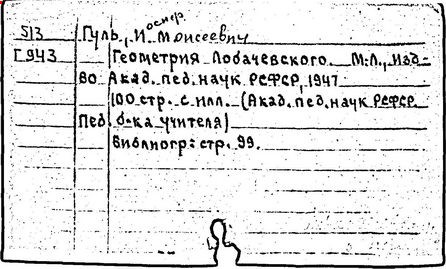 513 Гуль, Иосиф Моисеевич
Г943 Геометрия Лобачевского. М.-Л., Изд-
во Акад. пед. наук РСФСР, 1947
100 стр. с илл. (Акад. пед. наук РСФСР
Пед. б-ка учителя)
Библиогр: стр. 99.